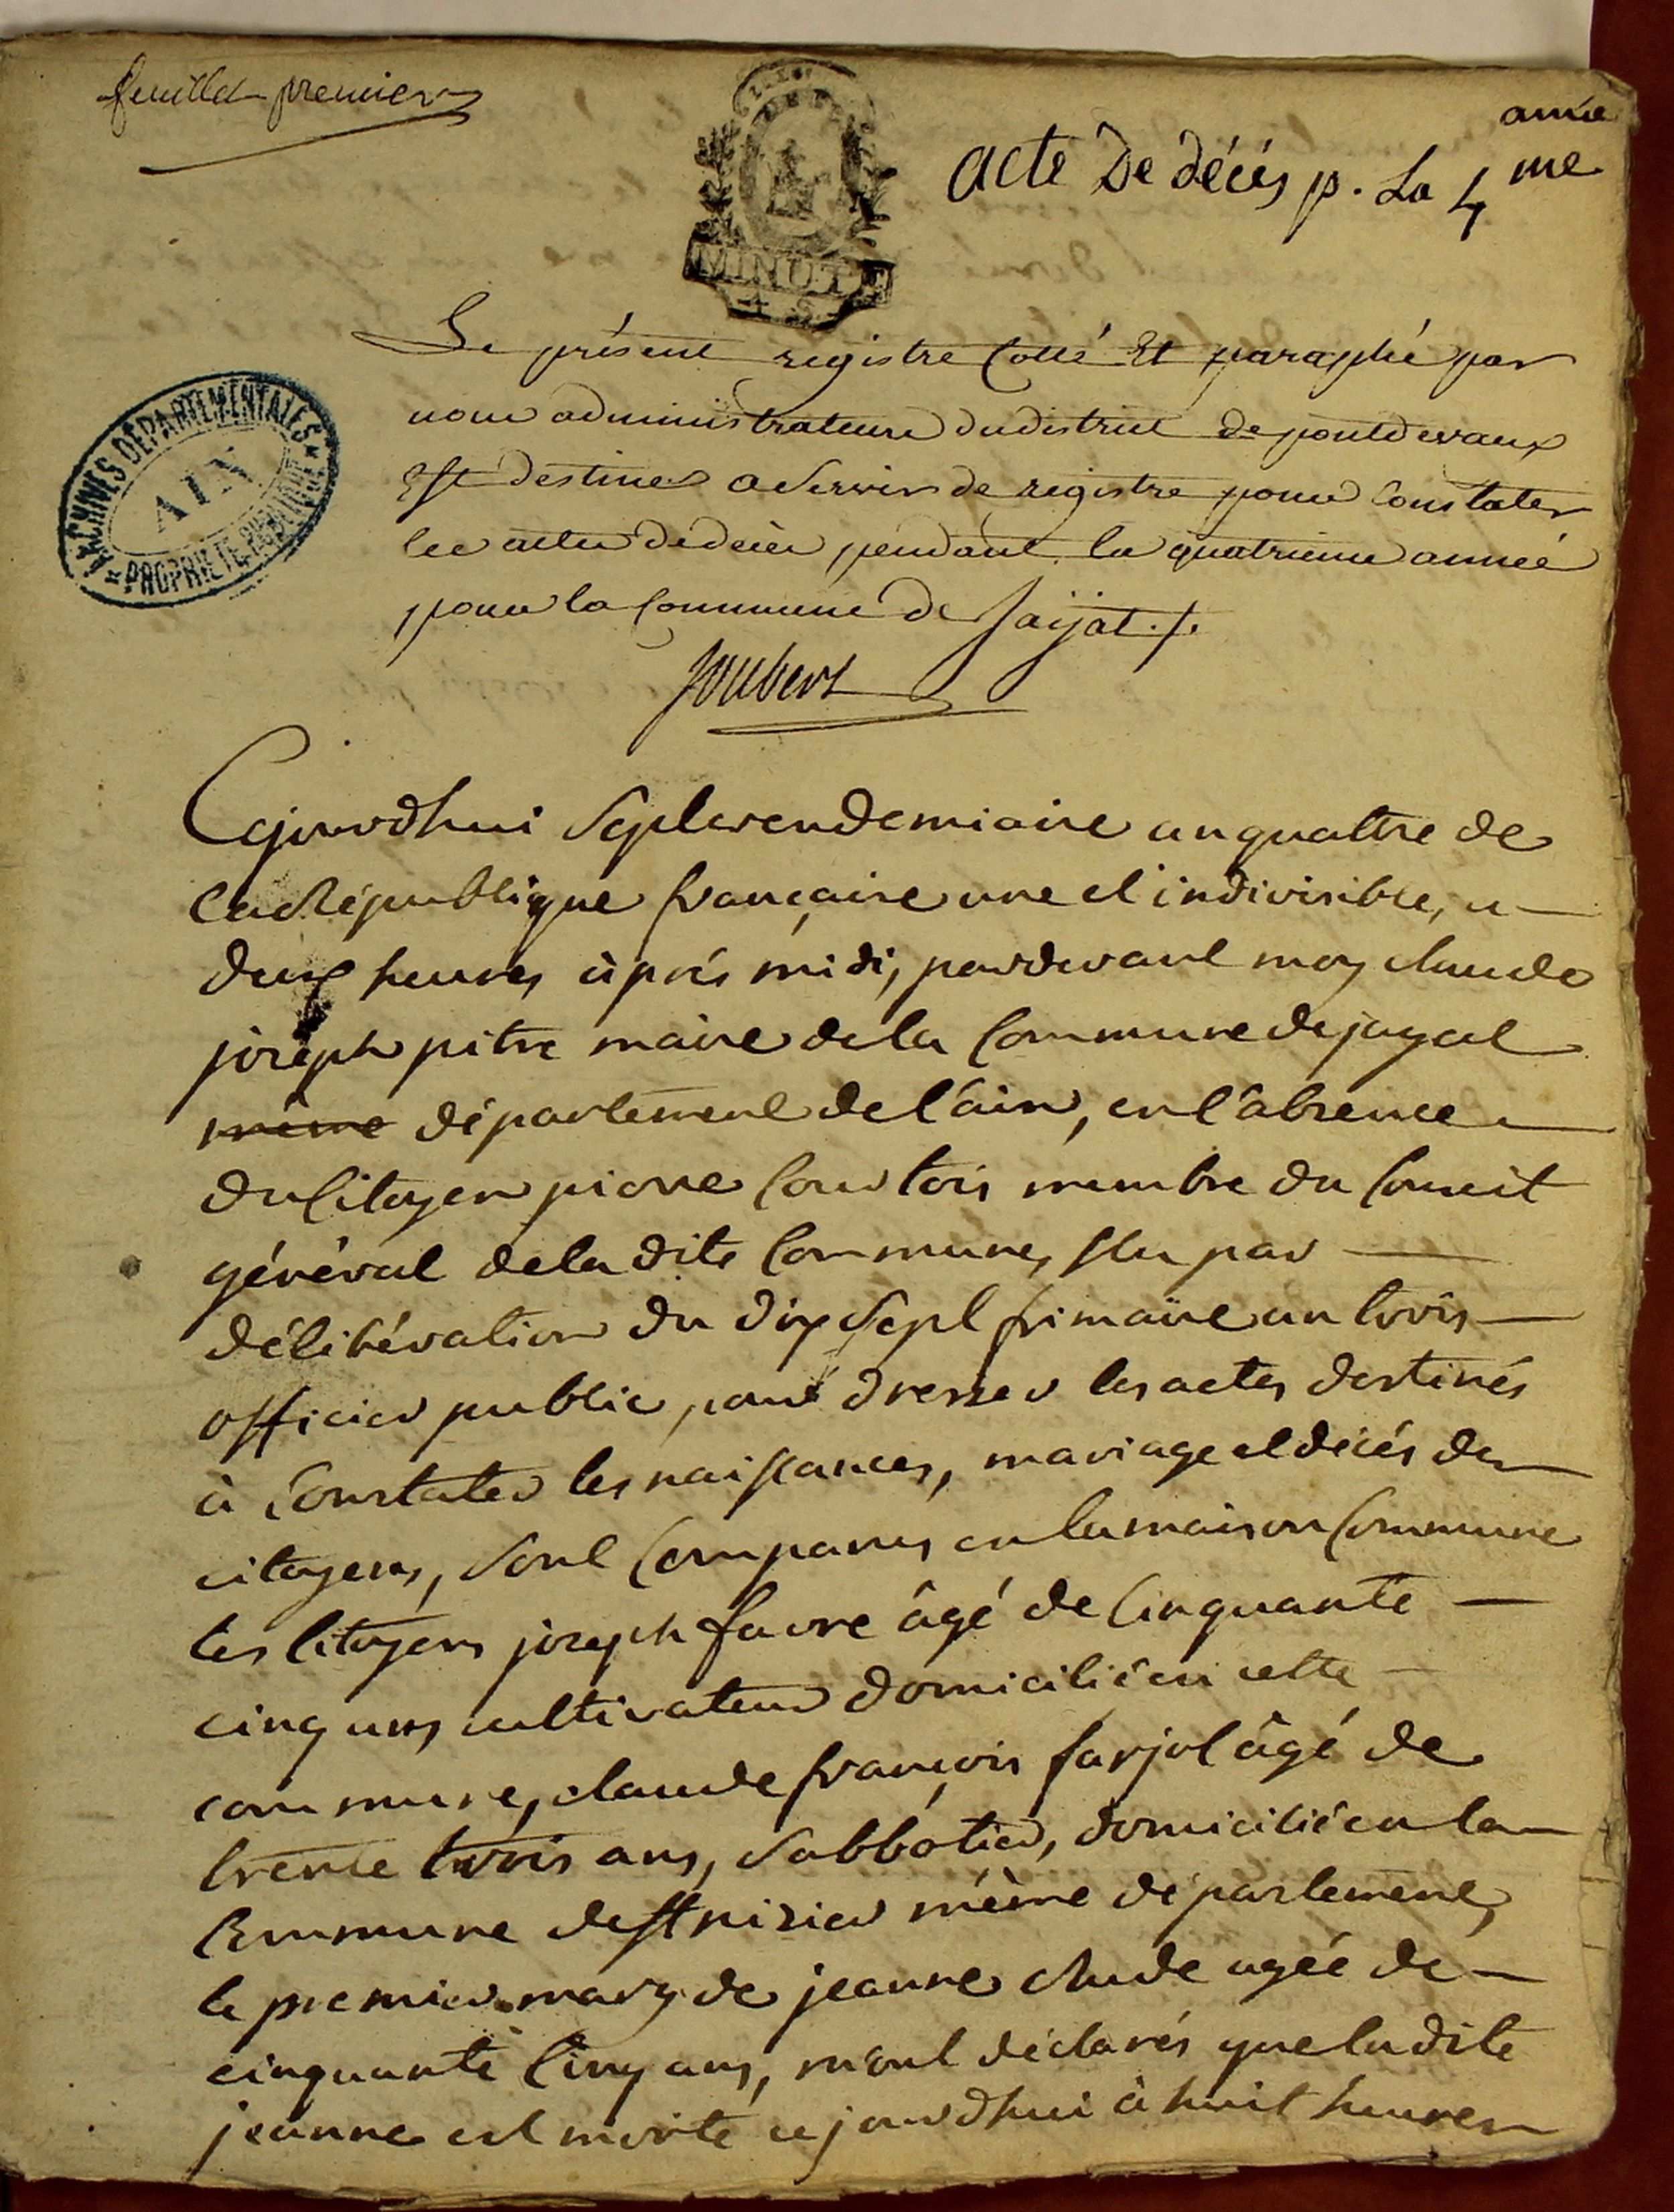 feuillet premier
année
acte De décés p. La 4 me
MINUTE
Le présent registre Cotté Et paraphé par
nous administrateurs du district de pontdevaux
Est destiné a Servir de registre pour Constater
les actes de décès pendant la quatrieme année
pour la Commune de Jaÿat ./.
Joubert
ARCHIVES DÉPARTEMENTALES
AIN
PROPRIÉTÉ PUBLIQUE
Cejourdhui Sept vendemiaire an quattre de
la République française une et indivisible, a
deux heures àprés midi, pardevant moy claude
joseph pitre maire de la Commune de jayat
même département de l'âin, en l'âbsence
du Citoyen pierre Courtois membre du Conseil
général de la dite Commune, élu par
délibération du dix Sept frimaire an trois
officier public, pour dresser les actes destinés
à Constater les naissances, mariage et décés des
citoyens, Sont Comparus en la maison Commune
les Citoyens joseph favre âgé de Cinquante
cinq ans, cultivateur domicilié en cette
commune, claude françois farjot âgé de
trente trois ans, Sabbotier, domicilié en la
Commune de St nizier même département,
le premier mary de jeanne claude agée de
cinquante Cinq ans, m'ont déclarés que ladite
jeanne est morte cejourdhui à huit heures